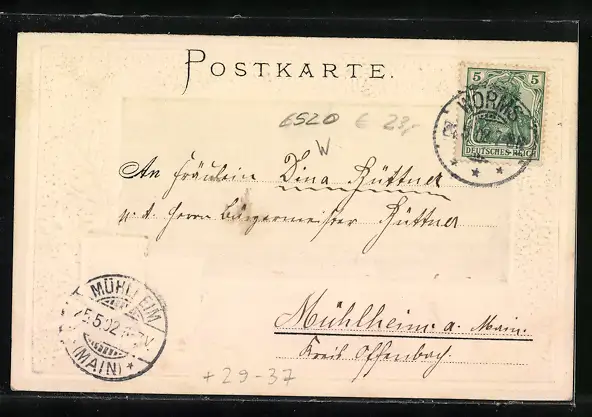 POSTKARTE.
5 5
DEUTSCHES REICH
WORMS
6520 € 23,-
W
An Fräulein Dina Hüttner
p. A. Herrn Bürgermeister Hüttner
Mühlheim a. Main.
Kreis Offenbach.
MÜHLHEIM
5.5.02
(MAIN)
+ 29-37